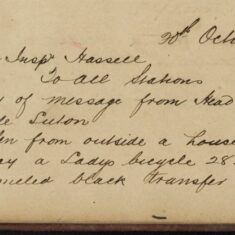 30th Octo
Inspr Hassell
To All Stations
y of message from Head
le Luton
len from outside a house
ay a Ladys bicycle 28
ameled black transfer